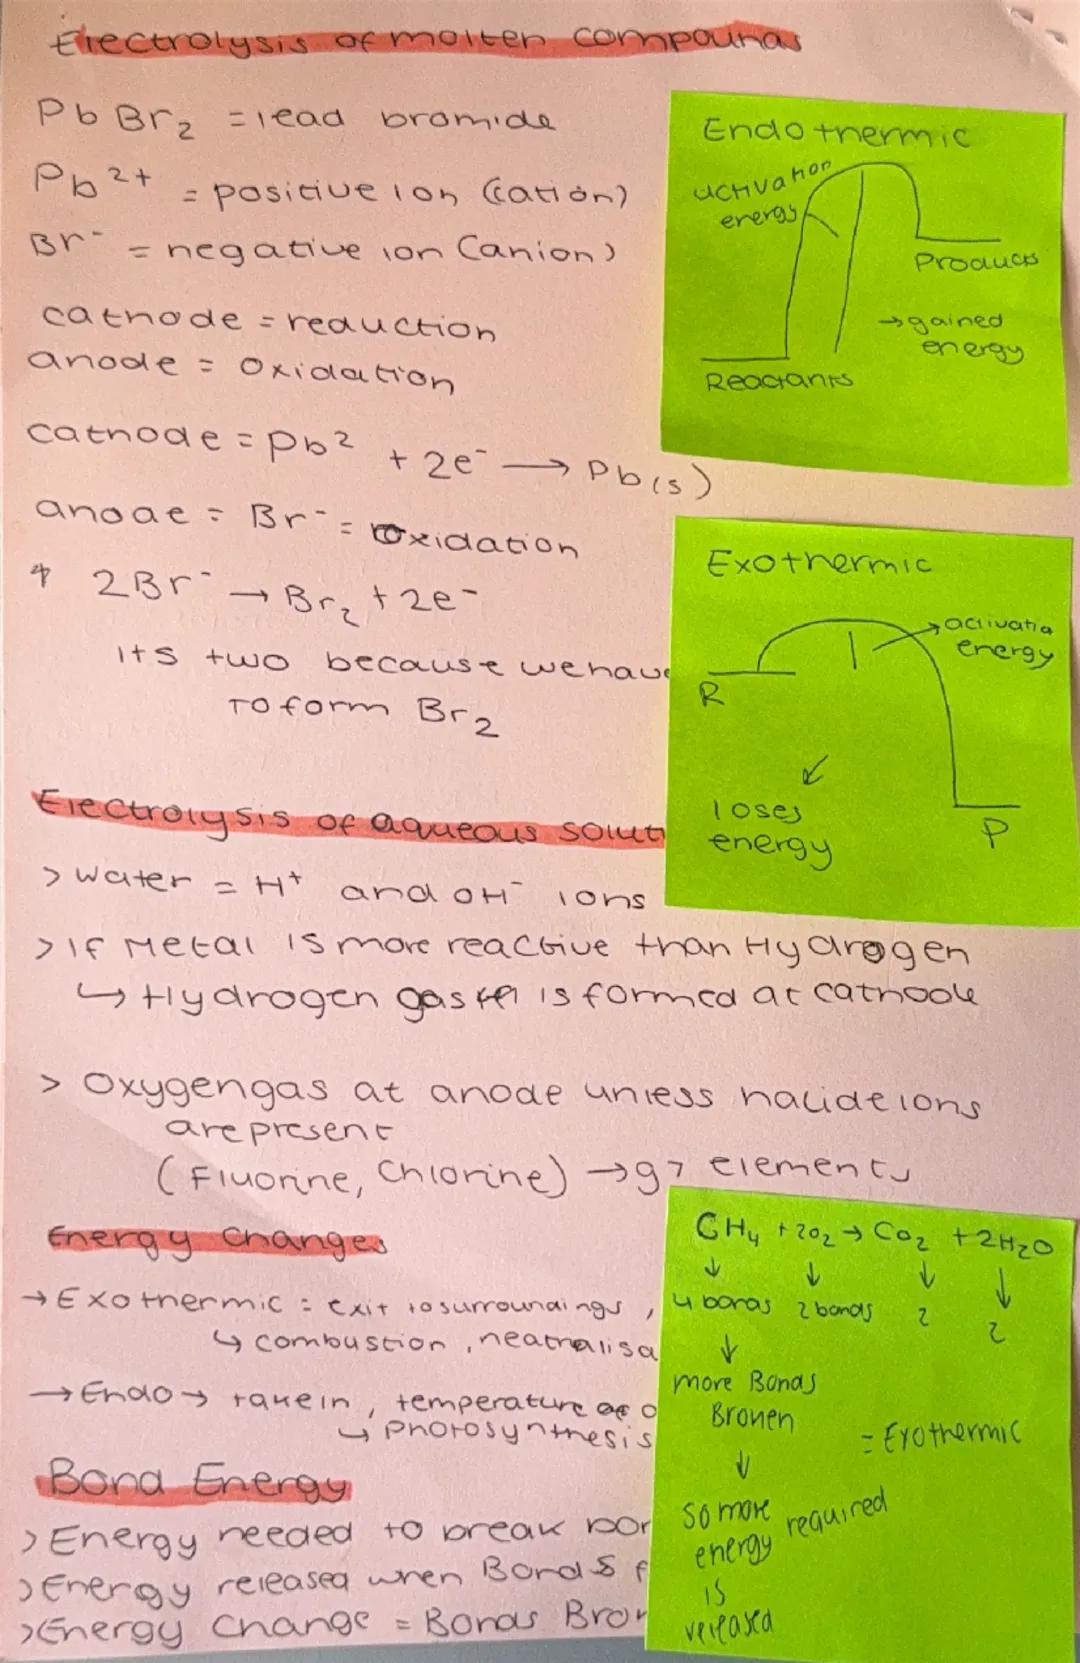 Electrolysis of molten compounds
PbBr₂ = lead bromide
Pb²⁺ = positive ion (cation)
Br⁻ = negative ion (anion)
cathode = reduction
anode = oxidation
cathode = Pb² + 2e⁻ → Pb(s)
anode = Br⁻ = oxidation
2Br⁻ → Br₂ + 2e⁻
its two because we have
to form Br₂
Endothermic
activation
energy
Products
→ gained
energy
Reactants
Exothermic
→ activatio
energy
R
↙
loses
energy
P
Electrolysis of aqueous soluti
> water = H⁺ and OH⁻ ions
> if Metal is more reactive than Hydrogen
↳ Hydrogen gas is formed at cathode
> Oxygen gas at anode unless halide ions
are present
(Fluorine, Chlorine) → g7 elements
Energy Changes
→ Exothermic = exit to surroundings,
↳ combustion, neutralisa
→ Endo → take in, temperature
↳ Photosynthesis
Bond Energy
> Energy needed to break bon
> Energy released when Bonds f
> Energy Change = Bonds Brok
CH₄ + 2O₂ → CO₂ + 2H₂O
↓ ↓ ↓ ↓
4 bonds 2 bonds 2 2
↓
more Bonds
Broken
= Exothermic
↓
so more
energy required
is
released